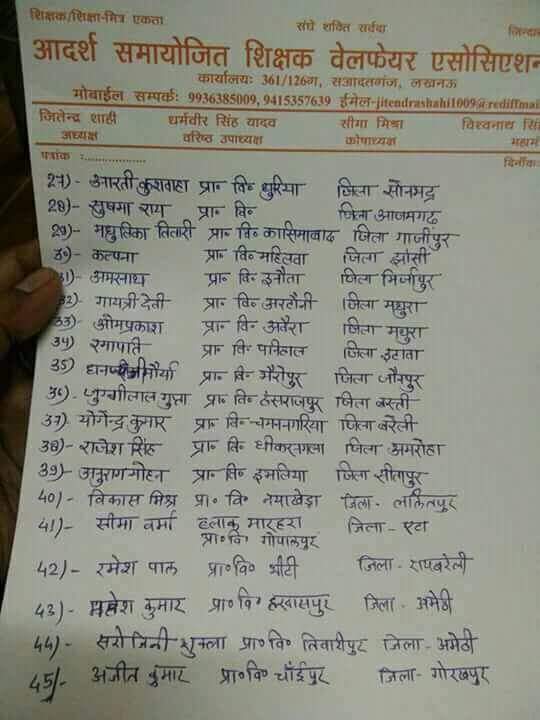 शिक्षक/शिक्षा-मित्र एकता संघे शक्ति सर्वदा
आदर्श समायोजित शिक्षक वेलफेयर एसोसिएशन
कार्यालयः 361/126ग, सआदतगंज, लखनऊ
मोबाईल सम्पर्कः 9936385009, 9415357639 ईमेल-jitendrashahi1009@rediffmai
जितेन्द्र शाही धर्मवीर सिंह यादव सीमा मिश्रा विश्वनाथ सि
अध्यक्ष वरिष्ठ उपाध्यक्ष कोषाध्यक्ष महाम
पत्रांक :............... दिनाँक
27)- आरती कुशवाहा प्रा० वि० धुरिया जिला सोनभद्र
28)- सुषमा राय प्रा० वि० जिला आजमगढ़
29)- मधुलिका तिवारी प्रा० वि० कासिमावाद जिला गाजीपुर
30)- कल्पना प्रा० वि० महिलवा जिला झाँसी
31)- अमरनाथ प्रा० वि० जिला मिर्जापुर
32)- गायत्री देवी प्रा० वि० अरहौनी जिला मथुरा
33)- ओमप्रकाश प्रा० वि० अवैरा जिला मथुरा
34) रमापति प्रा० वि० जिला इटावा
35) मौर्या प्रा० वि० भैरोपुर जिला जौनपुर
36)- जुग्गीलाल गुप्ता प्रा० वि० हंसराजपुर जिला बस्ती
37) योगेन्द्र कुमार प्रा० वि० चमनगरिया जिला बरेली
38)- राजेश सिंह प्रा० वि० जिला अमरोहा
39)- अनुराग मोहन प्रा० वि० इमलिया जिला सीतापुर
40)- विकास मिश्र प्रा० वि० नयाखेड़ा जिला- ललितपुर
41)- सीमा वर्मा ब्लाक मारहरा जिला - एटा
प्रा० वि० गोपालपुर
42)- रमेश पाल प्रा० वि० भौंटी जिला - रायबरेली
43)- महेश कुमार प्रा० वि० जिला - अमेठी
44)- सरोजिनी शुक्ला प्रा० वि० तिवारीपुर जिला- अमेठी
45)- अजीत कुमार प्रा० वि० चाँईपुर जिला- गोरखपुर